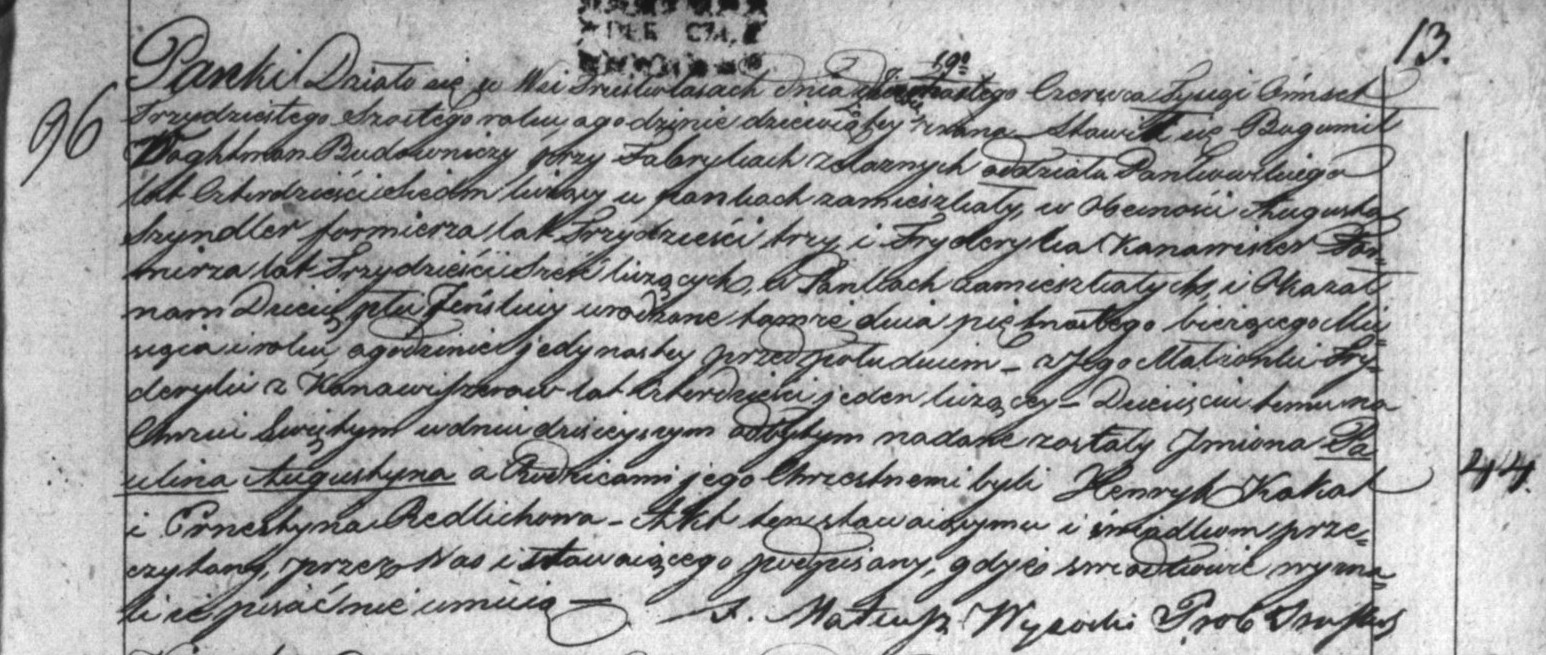 13.
Panki Działo się w Wsi Truskolasach Dnia 19go Czerwca Tysiąc Ośmset
96
Trzydziestego Szostego roku, o godzinie dziewiątey z rana Stawił się Bogumił
Waghtman Budowniczy przy Fabrykach żelaznych oddziału Pankowskiego
lat Czterdzieści siedm liczący w Pankach zamieszkały, w Obecności Augusta
Szyndler formierza lat Trzydzieści trzy i Fryderyka Kanawiszer For-
mierza lat Trzydzieści Sześć liczących, w Pankach zamieszkałych, i Okazał
nam Dziecię płci Żeńskiey urodzone tamże dnia piętnastego bieżącego Mie-
siąca i roku o godzinie jedynastey przed południem – z Jego Małżonki Fry-
deryki z Kanawiszerow lat Czterdzieści jeden liczącey – Dziecięciu temu na
Chrzcie Swiętym w dniu dzisieyszym odbytym nadane zostały Jmiona Pa
ulina Augustyna a Rodzicami jego Chrzestnemi byli Henryk Kakat
44.
i Ernestyna Redlichowa – Akt ten stawaiącymu i świadkom prze-
czytany, przez Nas i stawaiącego podpisany, gdyż świadkowie wyzna-
li iż pisać nie umieią –
X. Mateusz Wysocki Prob Trusk